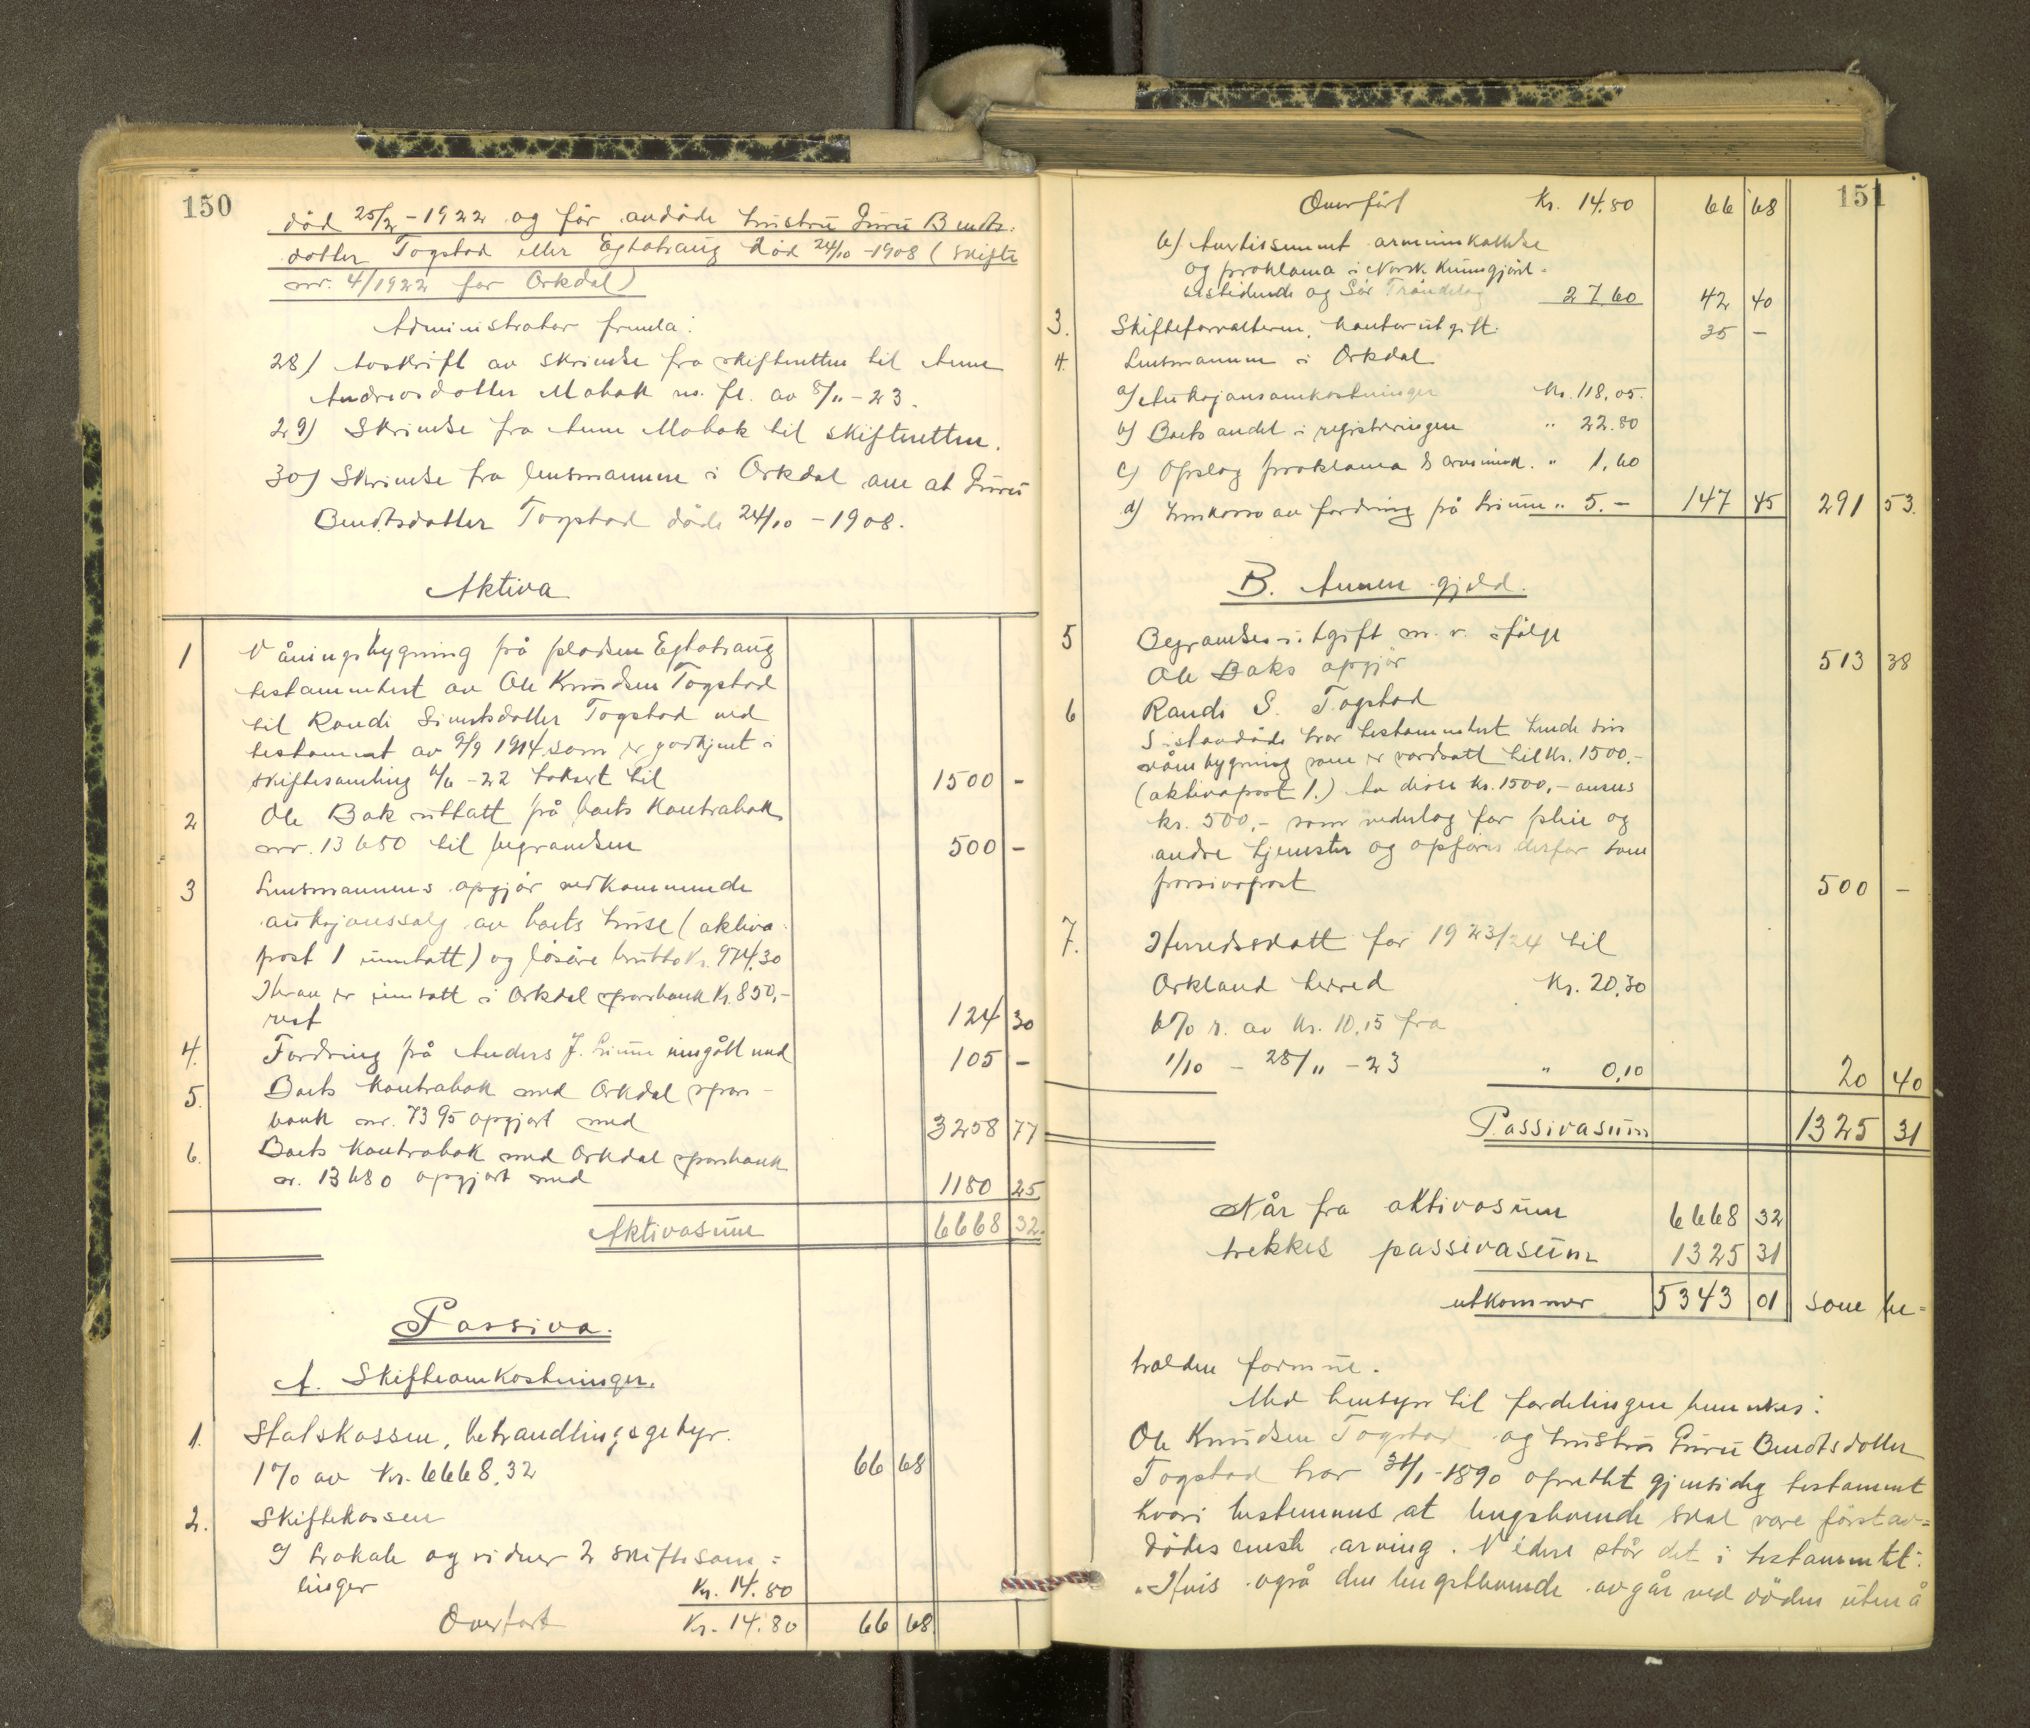 150
død 25/2 - 1922 og før avdøde hustru Guru Bendts-
datter Togstad eller Egtatraug død 24/10 - 1908 (skifte
nr. 4/1922 for Orkdal)
Administrator fremla:
28) Avskrift av skrivelse fra skifteretten til Anne
Andreasdatter Mohok m. fl. av 8/11 - 23.
29) Skrivelse fra Anne Mohok til skifteretten.
30) Skrivelse fra lensmannen i Orkdal om at Guru
Bendtsdatter Togstad døde 24/10 - 1908.
Aktiva
1 Våningsbygning på pladsen Egtatraug
testamentert av Ole Knudsen Togstad
til Randi Sivertsdatter Togstad ved
testament av 9/9 1914 som er godkjent i
skiftesamling 6/6 - 22 taksert til 1500 -
2 Ole Bak uttatt på boets kontrabok
nr. 13680 til begravelsen 500 -
3 Lensmannens opgjør vedkommende
auksjonssalg av boets huse (aktiva-
post 1 unntatt) og løsøre brutto Kr. 974,30
Herav er innsatt i Orkdal sparebank Kr. 850,-
rest 124 30
4. Fordring på Anders J. Grune inngått med 105 -
5. Boets kontrabok med Orkdal spare-
bank nr. 7395 opgjort med 3258 77
6. Boets kontrabok med Orkdal sparebank
nr. 13680 opgjort med 1180 25
Aktivasum 6668 32.
Passiva.
A. Skifteomkostninger.
1. Statskassen, behandlingsgebyr.
1% av Kr. 6668,32 66 68
2. Skiftekassen
a) Lokale og vidner 2 skiftesam=
linger Kr. 14.80
Overført Kr. 14.80 66 68.
151
Overført Kr. 14.80 66 68
b) Avertissement arveinnkallelse
og proklama i Norsk Kunngjørel-
sestidende og Sør Trøndelag 27 60 42 40
3. Skifteforvalteren, kontorutgift. 35 -
4. Lensmannen i Orkdal
a) Auksjonsomkostninger Kr. 118,05.
b) Boets andel i registreringen " 22.80
c) Opslag proklama & arveinnk. " 1,60
d) Innkasso av fordring på Grune " 5.- 147 45 291 53.
B. Annen gjeld.
5 Begravelsesutgift m. v. ifølge
Ole Baks opgjør 513 38
6 Randi S. Togstad
Sistavdøde har testamentert hende sin
våningsbygning som er verdsatt til Kr. 1500.-
(aktivapost 1.) Av disse Kr. 1500,- anses
kr. 500,- som vederlag for pleie og
andre tjenester og opføres derfor som
passivapost 500 -
7. Herredsskatt for 1923/24 til
Orkland herred Kr. 20,30
6% r. av Kr. 10,15 fra
1/10 - 28/11 - 23 " 0,10 20 40
Passivasum 1325 31
Når fra aktivasum 6668 32
trekkes passivasum 1325 31
utkommer 5343 01 som be=
holden formue.
Med hensyn til fordelingen bemerkes:
Ole Knudsen Togstad og hustru Guru Bendtsdatter
Togstad har 31/1 - 1890 oprettet gjensidig testament
hvori bestemmes at lengstlevende skal være førstav=
dødes eneste arving. Videre står det i testamentet:
"Hvis også den lengstlevende avgår ved døden uten å